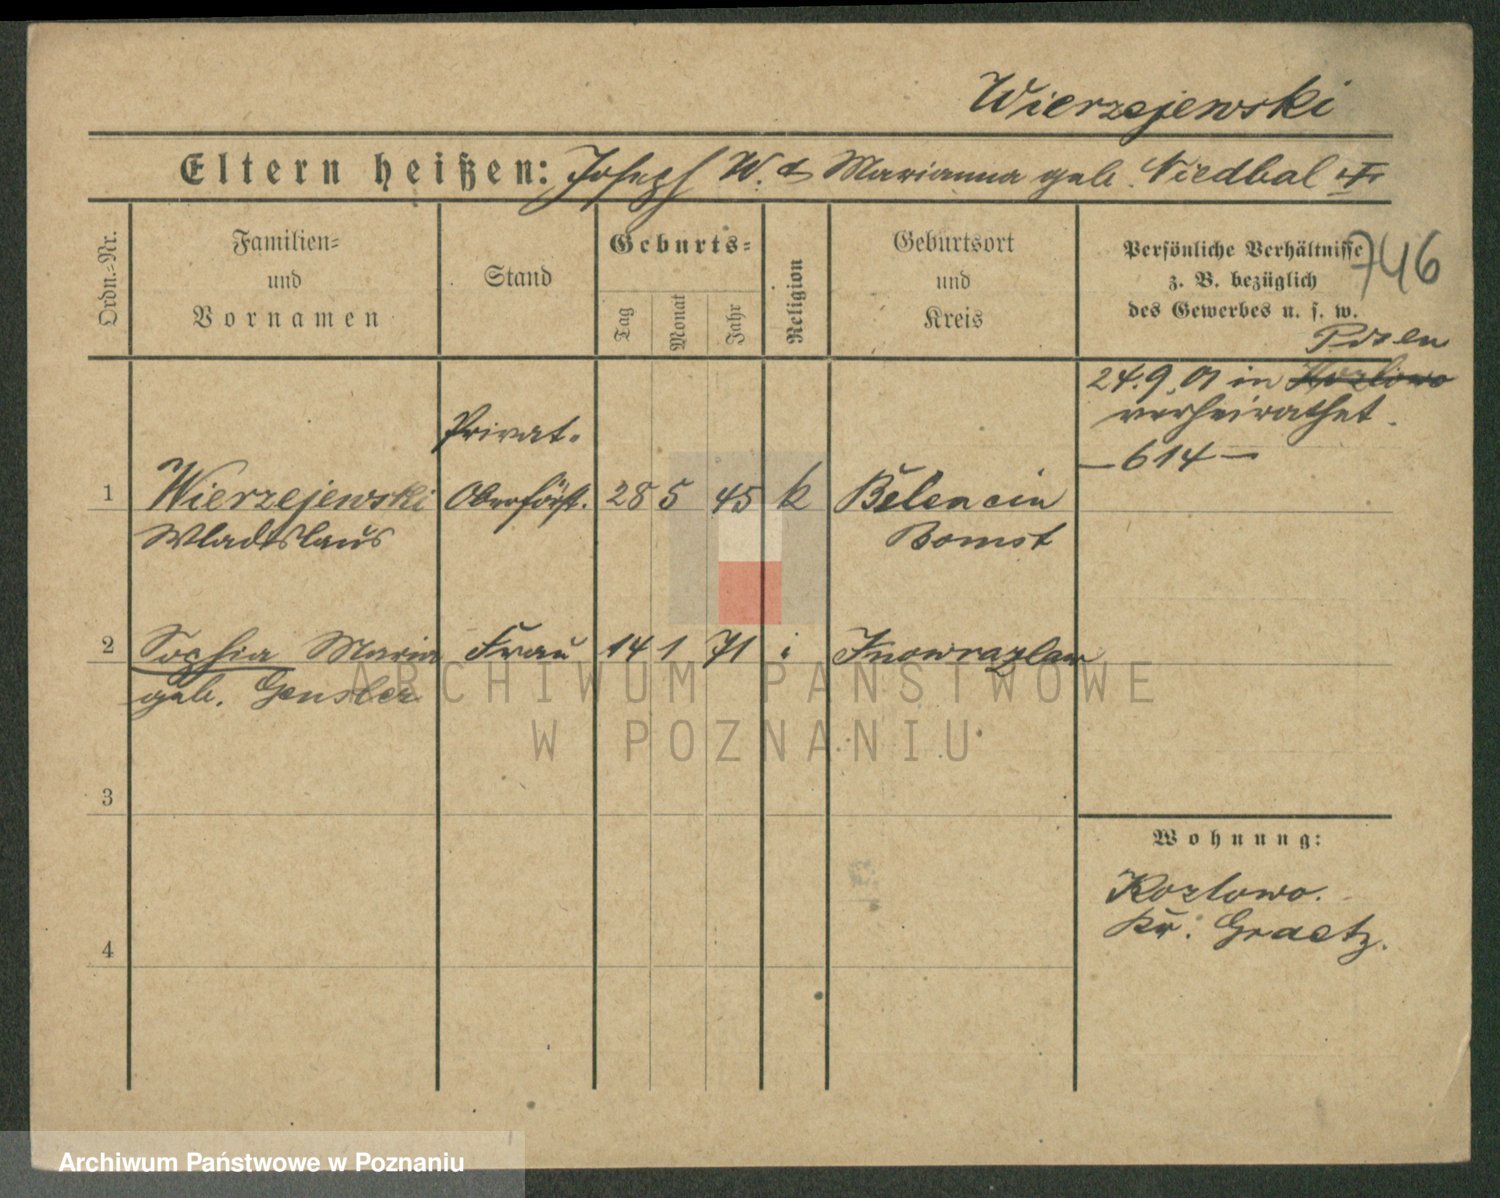 Wierzejewski
Eltern heißen: Joseph W. & Marianna geb. Niedbal
Ordn.-Nr.
Familien-
und
Vornamen
Stand
Geburts-
Tag
Monat
Jahr
Religion
Geburtsort
und
Kreis
Persönliche Verhältnisse
z. B. bezüglich
des Gewerbes u. s. w.
746
Posen
24.9.01 in Kozlowo
verheirathet.
—614—
Privat-
1 Wierzejewski Oberförst. 28 5 45 k Belencin
Wladislaus Bomst
2 Sophia Maria Frau 14 1 71 i Inowrazlaw
geb. Gensler
3
4
Wohnung:
Kozlowo.
Kr. Graetz.
ARCHIWUM PAŃSTWOWE
W POZNANIU
Archiwum Państwowe w Poznaniu